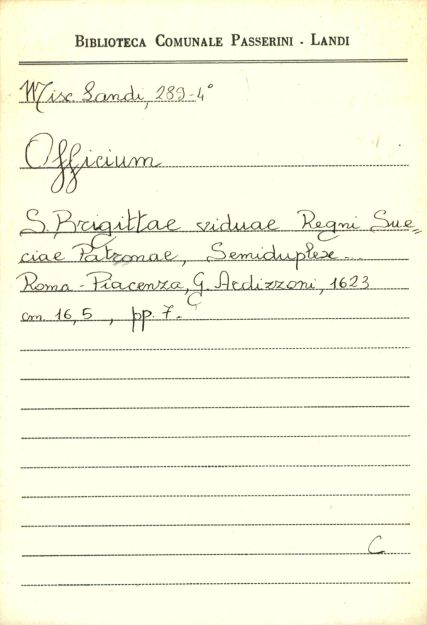 BIBLIOTECA COMUNALE PASSERINI - LANDI
Misc. Landi, 289-4°
Officium
S. Brigittae viduae Regni Sue=
ciae Patronae, Semiduplex.
Roma - Piacenza, G. Ardizzoni, 1623
cm. 16,5, pp. 7.
C